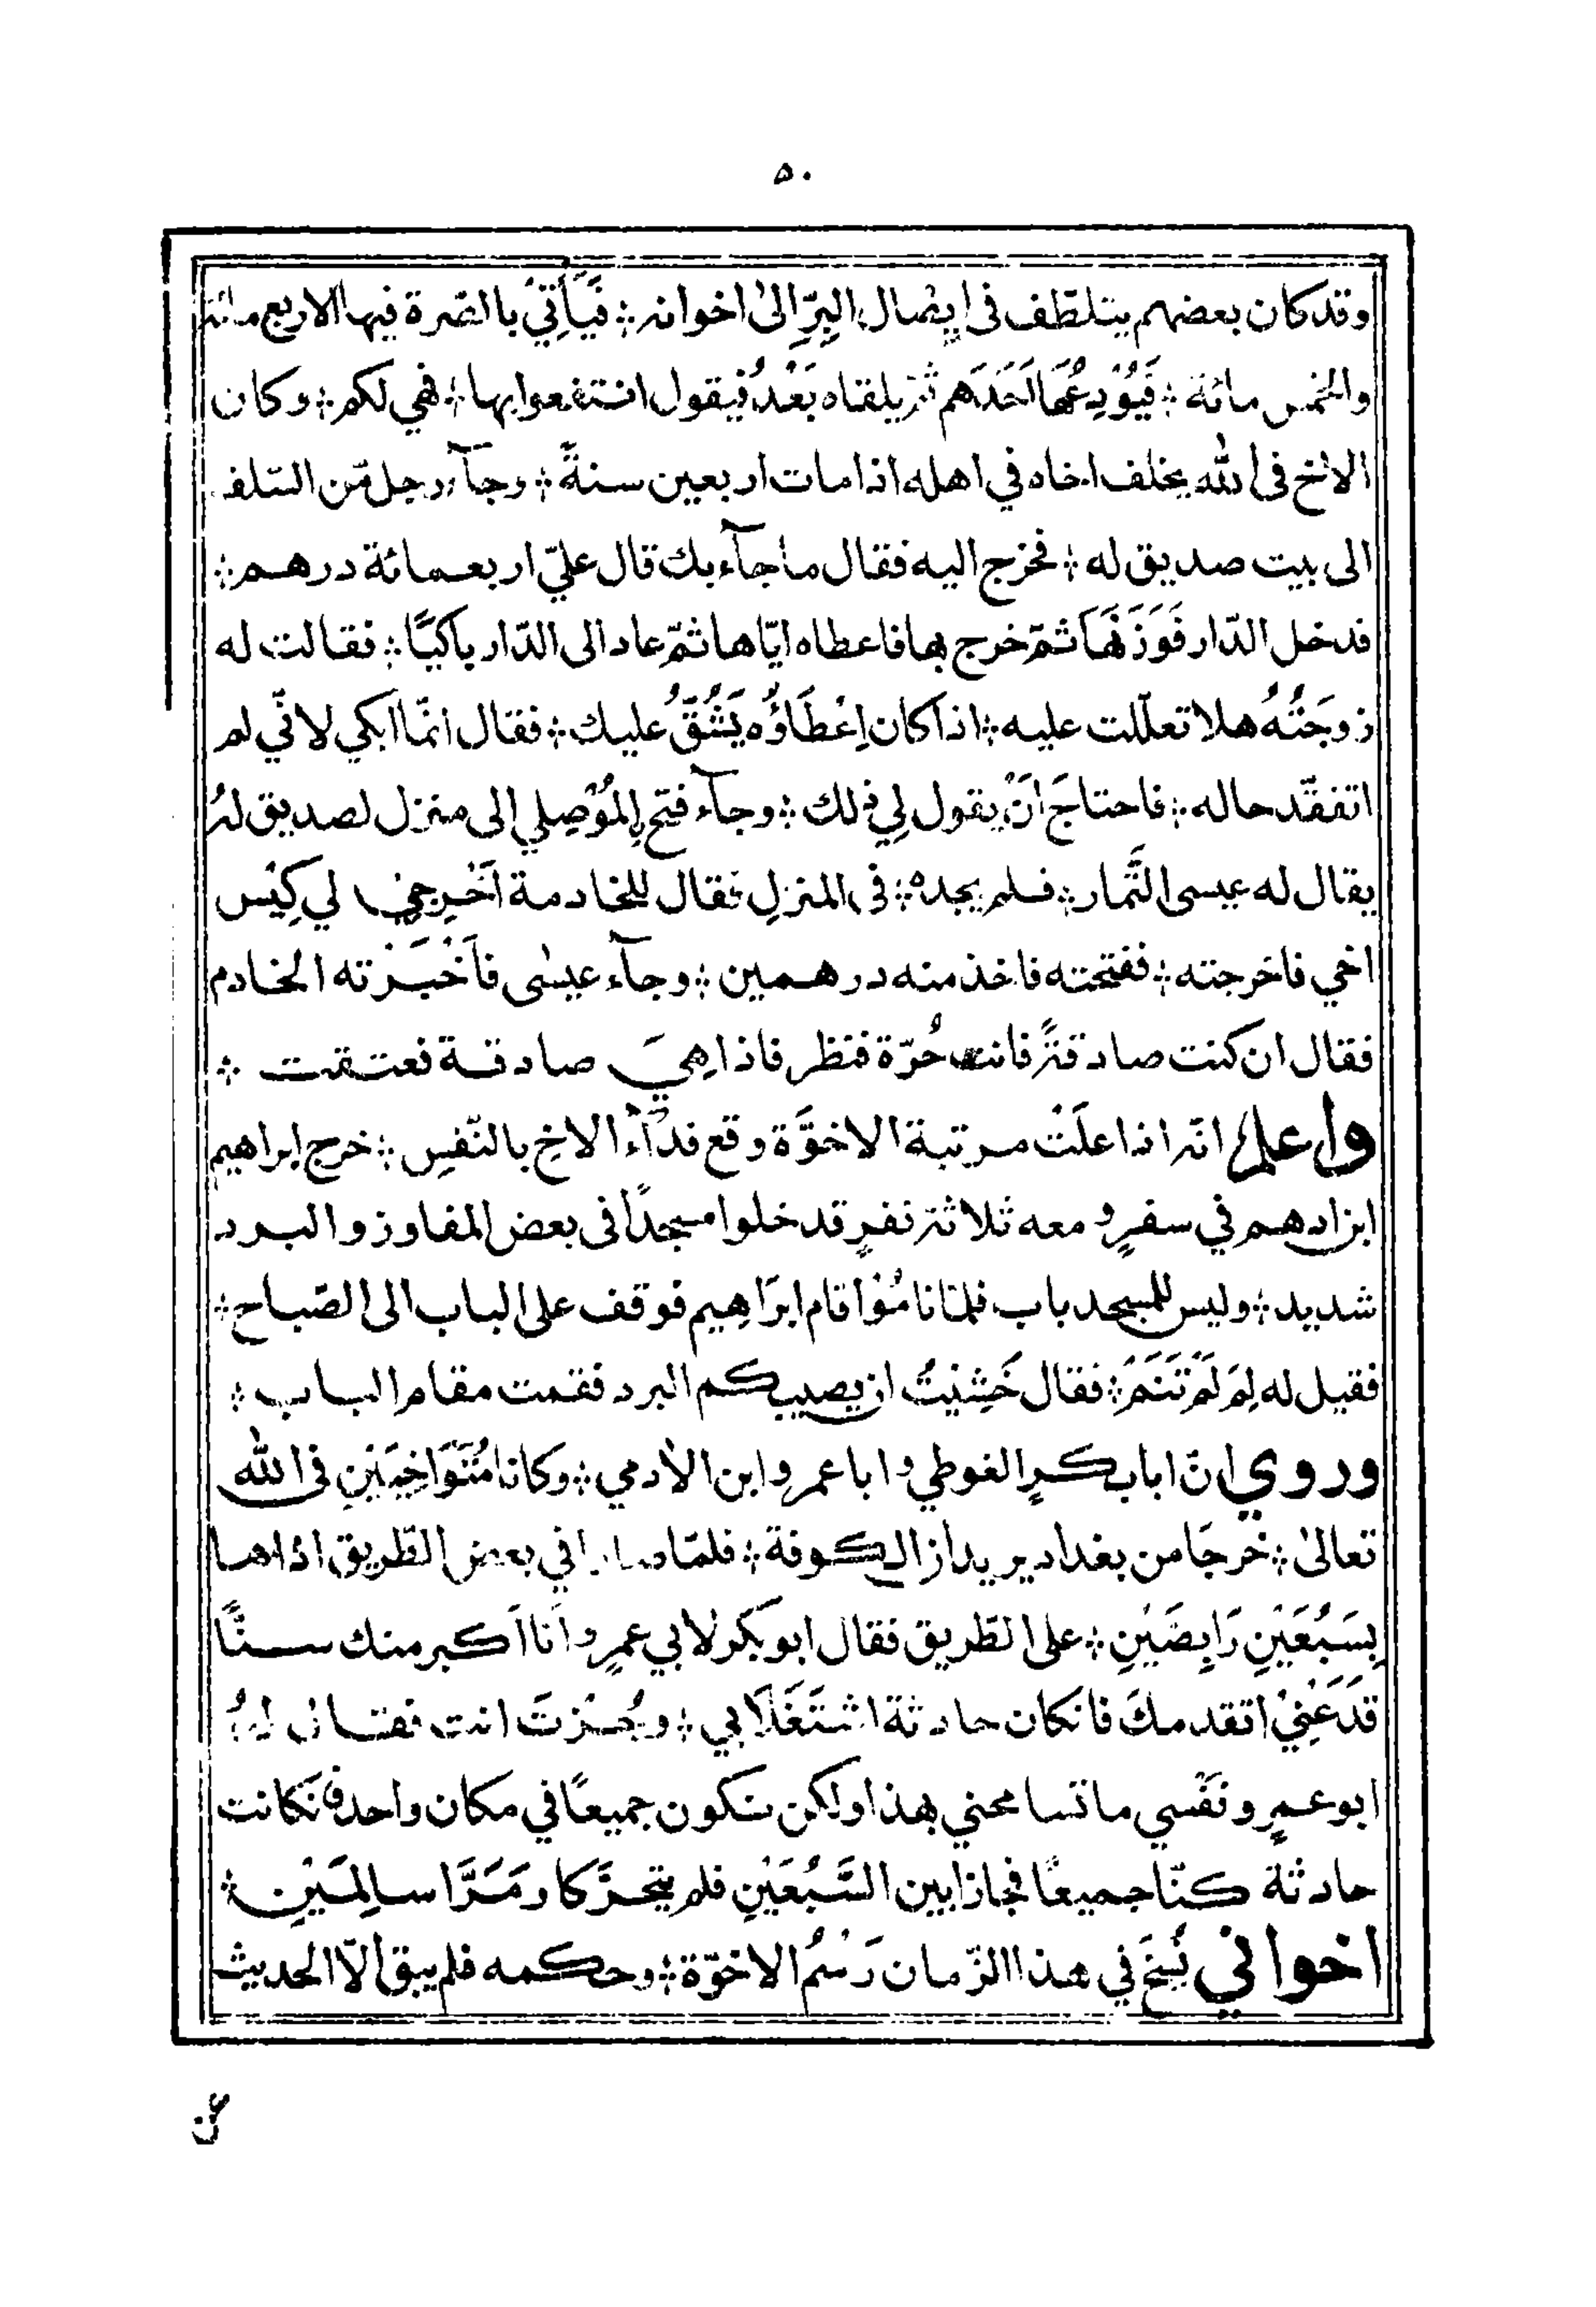 ٥٠
وقد كان بعضهم يتلطّف فى ايصال البِرِّ إلىٰ اخوانه ؞ فَيَأْتِيْ بالصّرة فيها الاربع مائة
والخمس مائة ؞ فَيُوْدِعُهَا اَحَدَهم ثمّ يلقاه بَعْدُ فيقول انتفعوا بها ؞ فهي لكم ؞ وكان
الاخ فى الله يخلف اخاه في اهله اذا مات اربعين سنةً ؞ وجآء رجل مّن السّلف
الى بيت صديق له ؞ فخرج اليه فقال ما جآء بك قال عليّ اربعمائة درهم ؞
فدخل الدّار فَوَزَنَهَا ثمّ خرج بها فاعطاه ايّاها ثمّ عاد الى الدّار باكيًا ؞ فقالت له
زوجَتُهُ هلا تعلّلت عليه ؞ اذا كان اِعْطَاؤُه يَشُقُّ عليك ؞ فقال انّما ابكي لانّي لم
اتفقّد حاله ؞ فاحتاجَ اَنْ يقول لِي ذلك ؞ وجآء فتح اِلمُوْصِلي إلى منزل لصديق لهُ
يقال له عيسى التَّمار ؞ فلم يجده ؞ فى المنزلِ فقال للخادمة اَخْرِجِي لي كِيْس
اخي فاخرجته ؞ ففتحته فاخذ منه درهمين ؞ وجآء عيسٰى فاَخْبَرْته الخادم
فقال ان كنت صادقةً فانت حُرّة فنظر فاذا هِيَ صادقة فعتقت ؞
واعلم انّه اذا علَتْ مرتبة الاخوَّة وقع فدَآءُ الاخِ بالنّفسِ ؞ خرج ابراهيم
ابن ادهم في سفرٍ و معه ثلاثة نفرٍ قد خلوا مسجدًا فى بعض المفاوز والبرد
شديد ؞ وليس للمسجد باب فلمّا نا مُوْا قام ابرَاهِيم فوقف على الباب الى الصّباح ؞
فقيل له لِمَ لَمْ تَنَمْ ؞ فقال خَشِيْتُ ان يصيبكم البرد فقمت مقام الباب ؞
وروي انّ ابا بكرٍ الغوطي و ابا عمرٍ وابن الاٰدمي ؞ وكانا مُتَوَاخِيَيْنِ فى الله
تعالىٰ ؞ خرجَا من بغداد يريدان الكوفة ؞ فلمّا صارا في بعض الطّريق اذا هما
بِسَبُعَيْنِ رَابِضَيْنِ ؞ على الطّريق فقال ابو بكر لابي عمرٍ و اَنا اَكبر منك سنًّا
فدَعْنِيْ اتقدمكَ فان كان حادثة اشتَغَلَا بي ؞ وجُزْتَ انت فقال لهُ
ابو عمرٍ و نَفْسي ما تسامحني بهذا ولكن نكون جميعًا في مكان واحد فان كانت
حادثة كنّا جميعًا فجازا بين السَّبُعَيْنِ فلم يتحرَّكا ومَرَّا سالِمَيْنِ ؞
اخواني نُسِخَ في هذا الزّمان رَسْمُ الاخوّة ؞ وحكمه فلم يبق الّا الحديث
عن